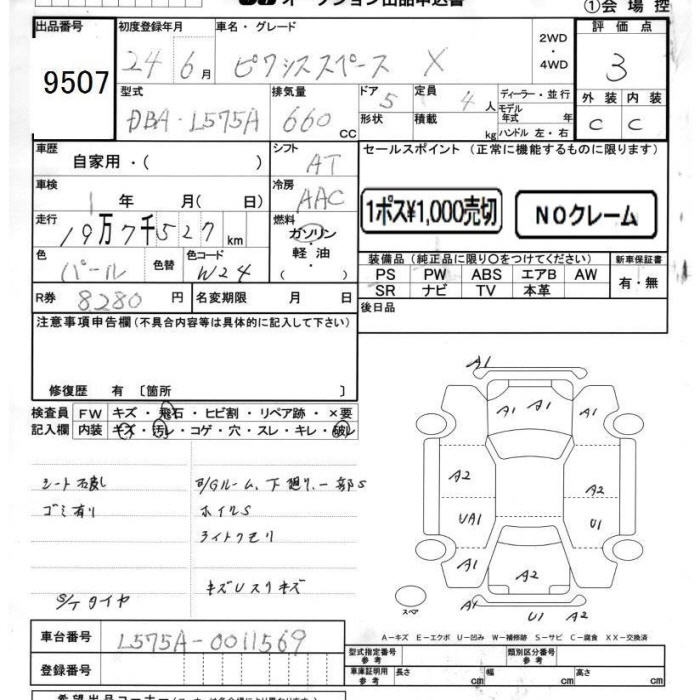 オークション出品申込書
①会場控
出品番号 初度登録年月 車名・グレード 評価点
9507 24 6月 ピクシススペース X 2WD・4WD 3
型式 排気量 ドア 定員 ディーラー・並行 外装 内装
DBA-L575A 660cc 5 4人 モデル年式 年 C C
形状 積載 kg ハンドル 左・右
車歴 シフト セールスポイント (正常に機能するものに限ります)
自家用・( ) AT
車検 冷房
1年 月( 日) AAC 1ポス¥1,000売切 NOクレーム
走行 燃料
19万7千527km ガソリン・軽油・( )
色 色替 色コード 装備品 (純正品に限り○をつけてください) 新車保証書
パール W24 PS PW ABS エアB AW 有・無
SR ナビ TV 本革
R券 8280円 名変期限 月 日 後日品
注意事項申告欄 (不具合内容等は具体的に記入して下さい)
修復歴 有 〔箇所 〕
検査員 FW キズ・飛石・ヒビ割・リペア跡・×要
記入欄 内装 キズ・汚レ・コゲ・穴・スレ・キレ・破レ
シート
ゴミ有り ホイルS
ライトクモリ
S/Tタイヤ キズUスリキズ
A1
A1 A1
A2 A2
UA1 U1
A1 A1
A2
スペア A1 U1 A2
A-キズ E-エクボ U-凹み W-補修跡 S-サビ C-腐食 XX-交換済
車台番号 L575A-0011569
型式指定番号 参考 類別区分番号 参考
登録番号 車庫証明用 参考 長さ cm 幅 cm 高さ cm
希望出品コーナー